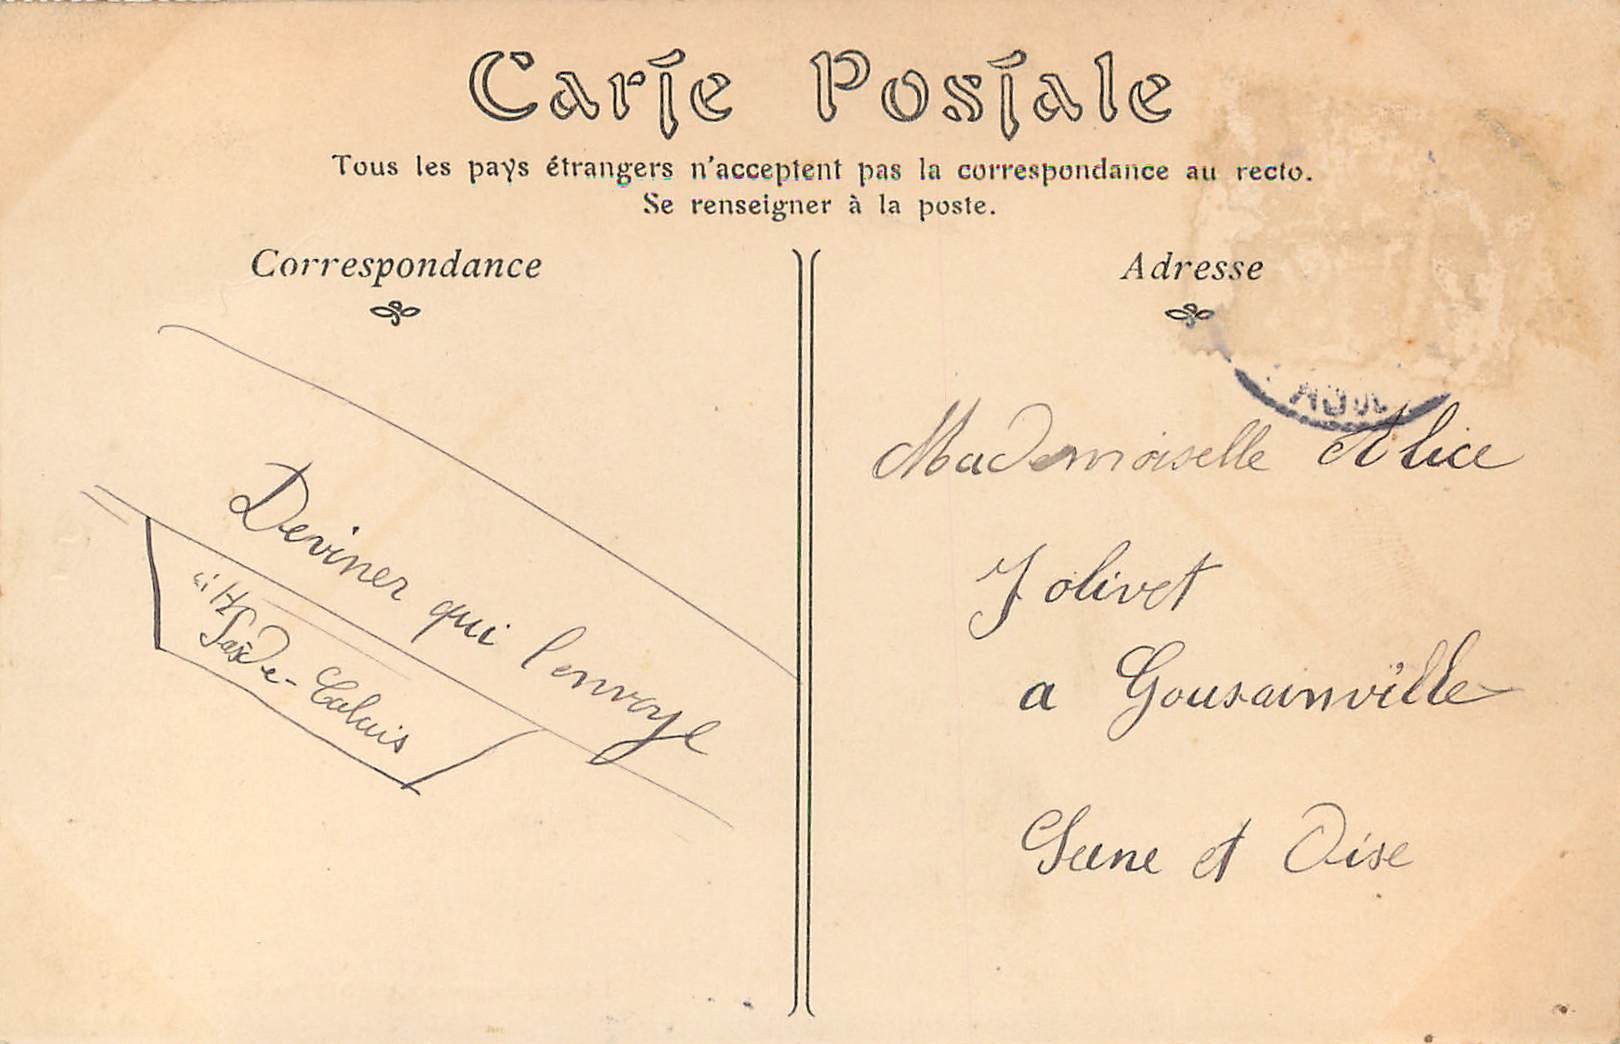 Carte Postale
Tous les pays étrangers n'acceptent pas la correspondance au recto.
Se renseigner à la poste.
Correspondance
Adresse
Deviner qui l'envoye
Pas de-Calais
Mademoiselle Alice
Jolivet
a Gousainville
Seine et Oise